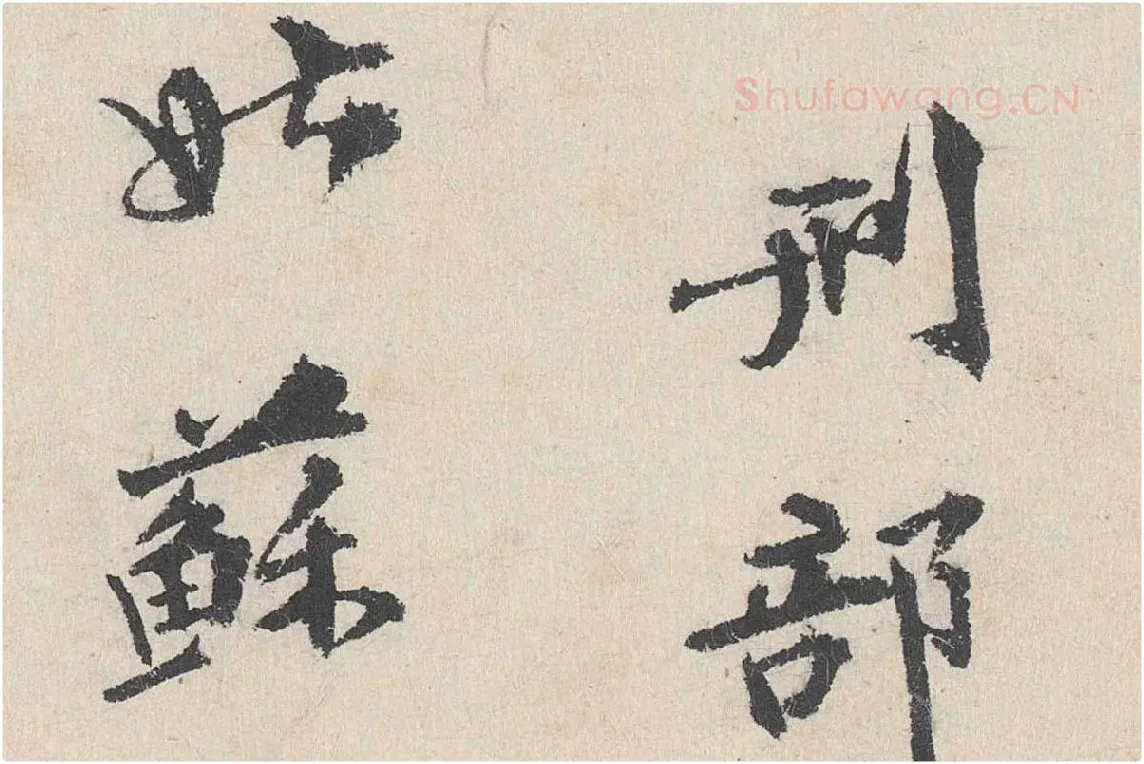 刑部
姑蘇
Shufawang.CN